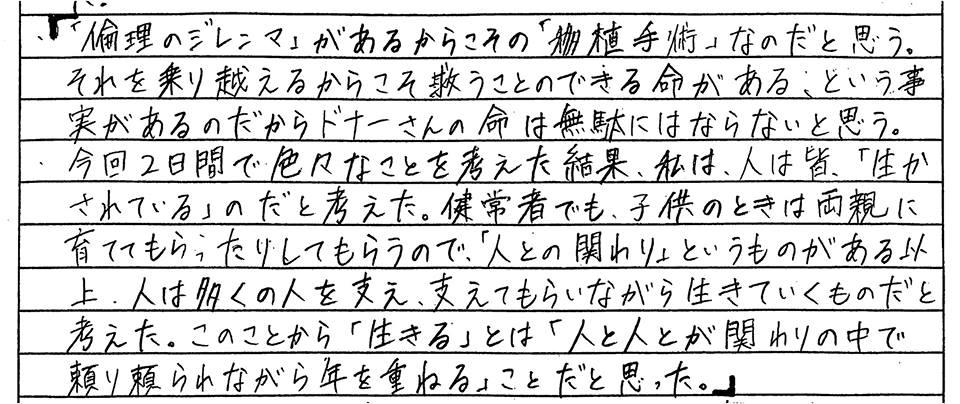 ・「倫理のジレンマ」があるからこその「移植手術」なのだと思う。
それを乗り越えるからこそ救うことのできる命がある、という事
実があるのだからドナーさんの命は無駄にはならないと思う。
・今回2日間で色々なことを考えた結果、私は、人は皆、「生か
されている」のだと考えた。健常者でも、子供のときは両親に
育ててもらったりしてもらうので、「人との関わり」というものがある以
上、人は多くの人を支え、支えてもらいながら生きていくものだと
考えた。このことから「生きる」とは「人と人とが関わりの中で
頼り頼られながら年を重ねる」ことだと思った。